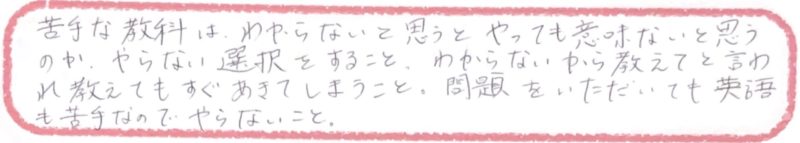 苦手な教科は、わからないと思うとやっても意味ないと思う
のか、やらない選択をすること、わからないから教えてと言わ
れ教えてもすぐあきてしまうこと。問題をいただいても英語
も苦手なのでやらないこと。